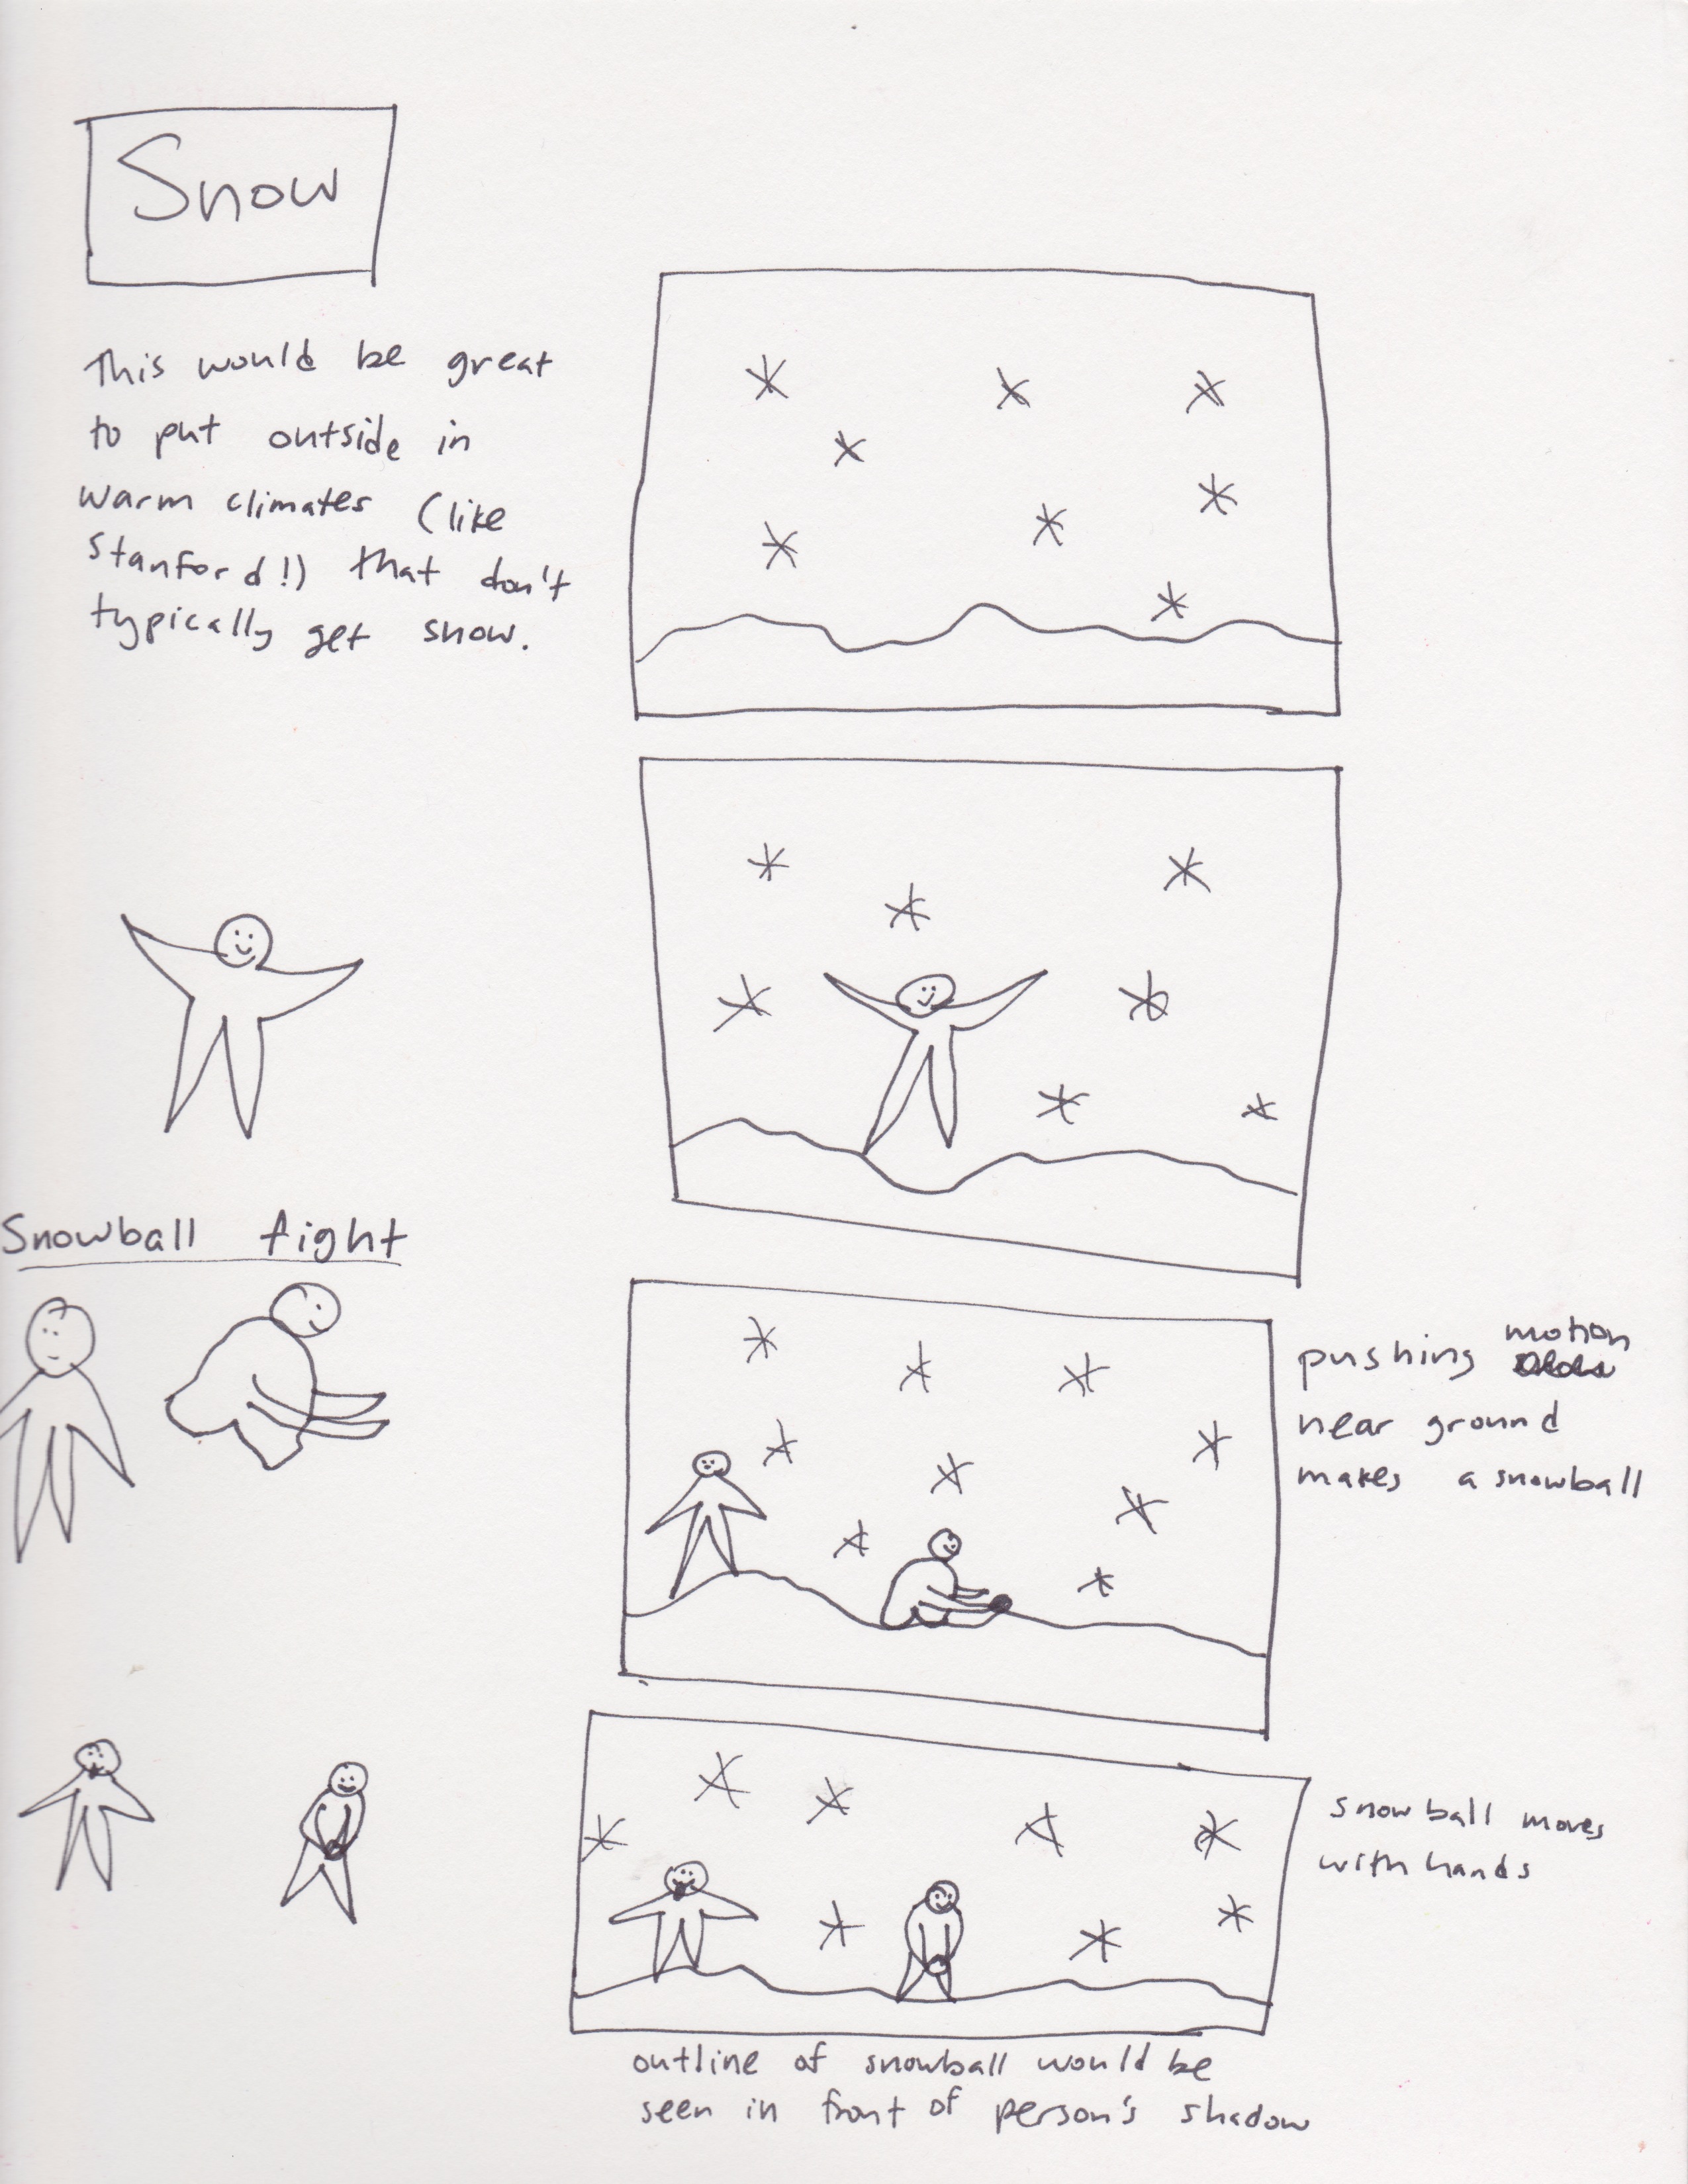 Snow
This would be great
to put outside in
warm climates (like
Stanford!) that don't
typically get snow.
Snowball fight
pushing motion
near ground
makes a snowball
snowball moves
with hands
outline of snowball would be
seen in front of person's shadow